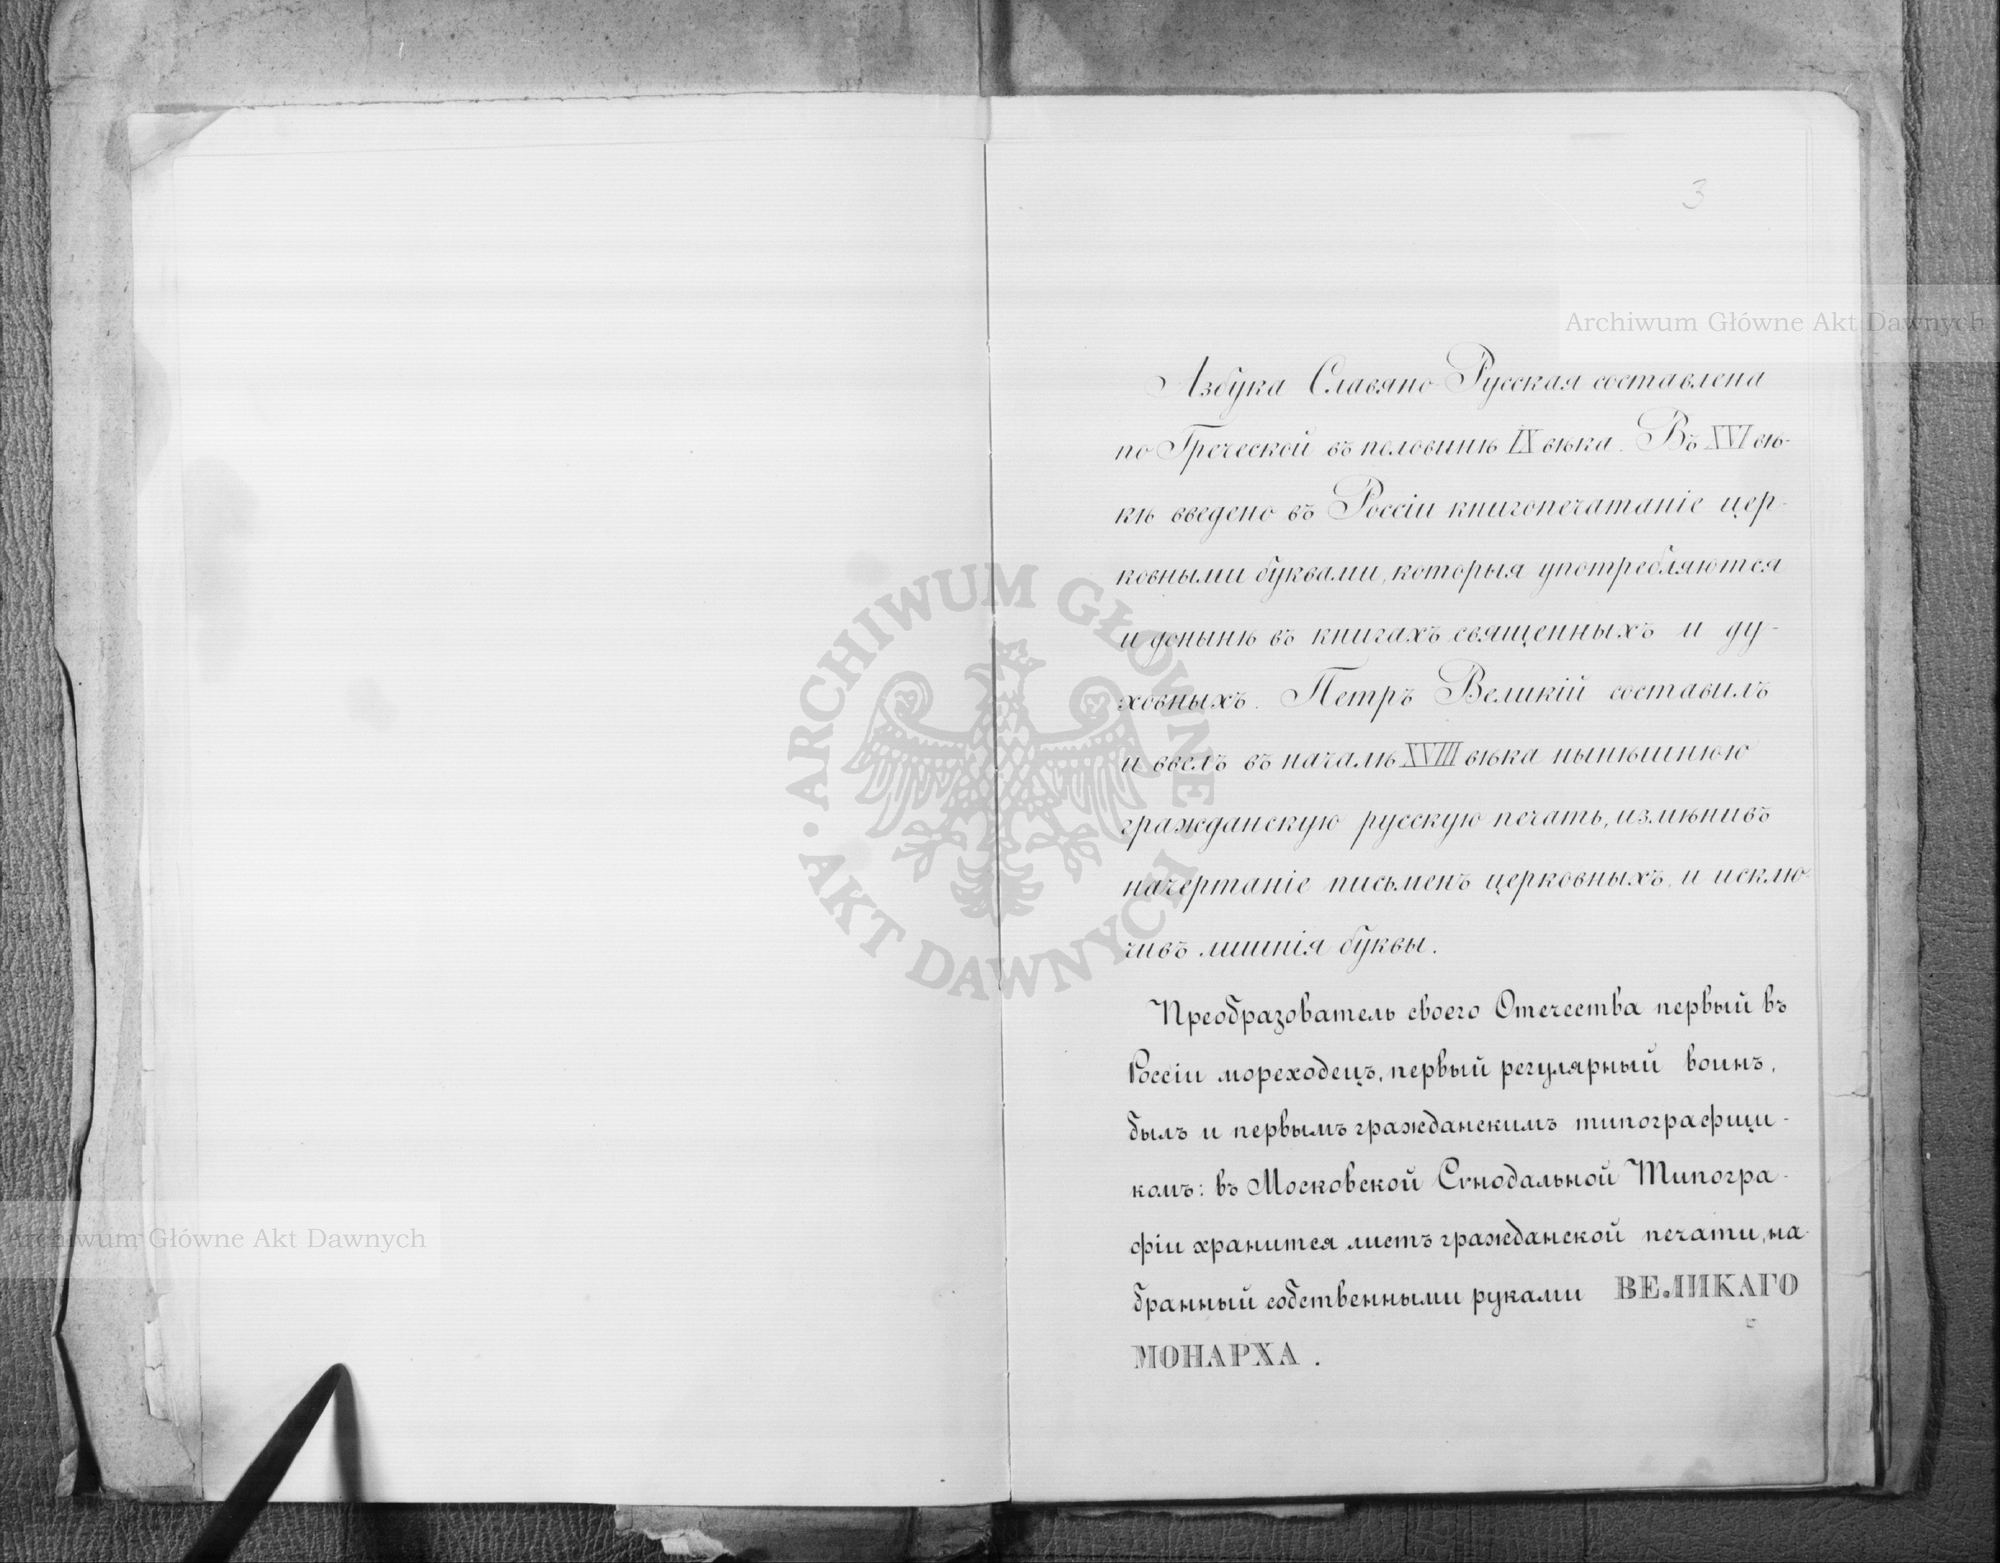 3
Archiwum Główne Akt Dawnych
Азбука Славяно-Русская составлена
по Греческой въ половинѣ IX вѣка. Въ XVI вѣ-
кѣ введено въ Россіи книгопечатаніе цер-
ковными буквами, которыя употребляются
и донынѣ въ книгахъ священныхъ и ду-
ховныхъ. Петръ Великій составилъ
и ввелъ въ началѣ XVIII вѣка нынѣшнюю
гражданскую русскую печать, измѣнивъ
начертаніе письменъ церковныхъ, и исклю-
чивъ лишнія буквы.
Преобразователь своего Отечества первый въ
Россіи мореходецъ, первый регулярный воинъ,
былъ и первымъ гражданскимъ типографщи-
комъ: въ Московской Сѵнодальной Типогра-
фіи хранится листъ гражданской печати, на-
бранный собственными руками ВЕЛИКАГО
МОНАРХА.
ARCHIWUM GŁÓWNE • AKT DAWNYCH •
Archiwum Główne Akt Dawnych